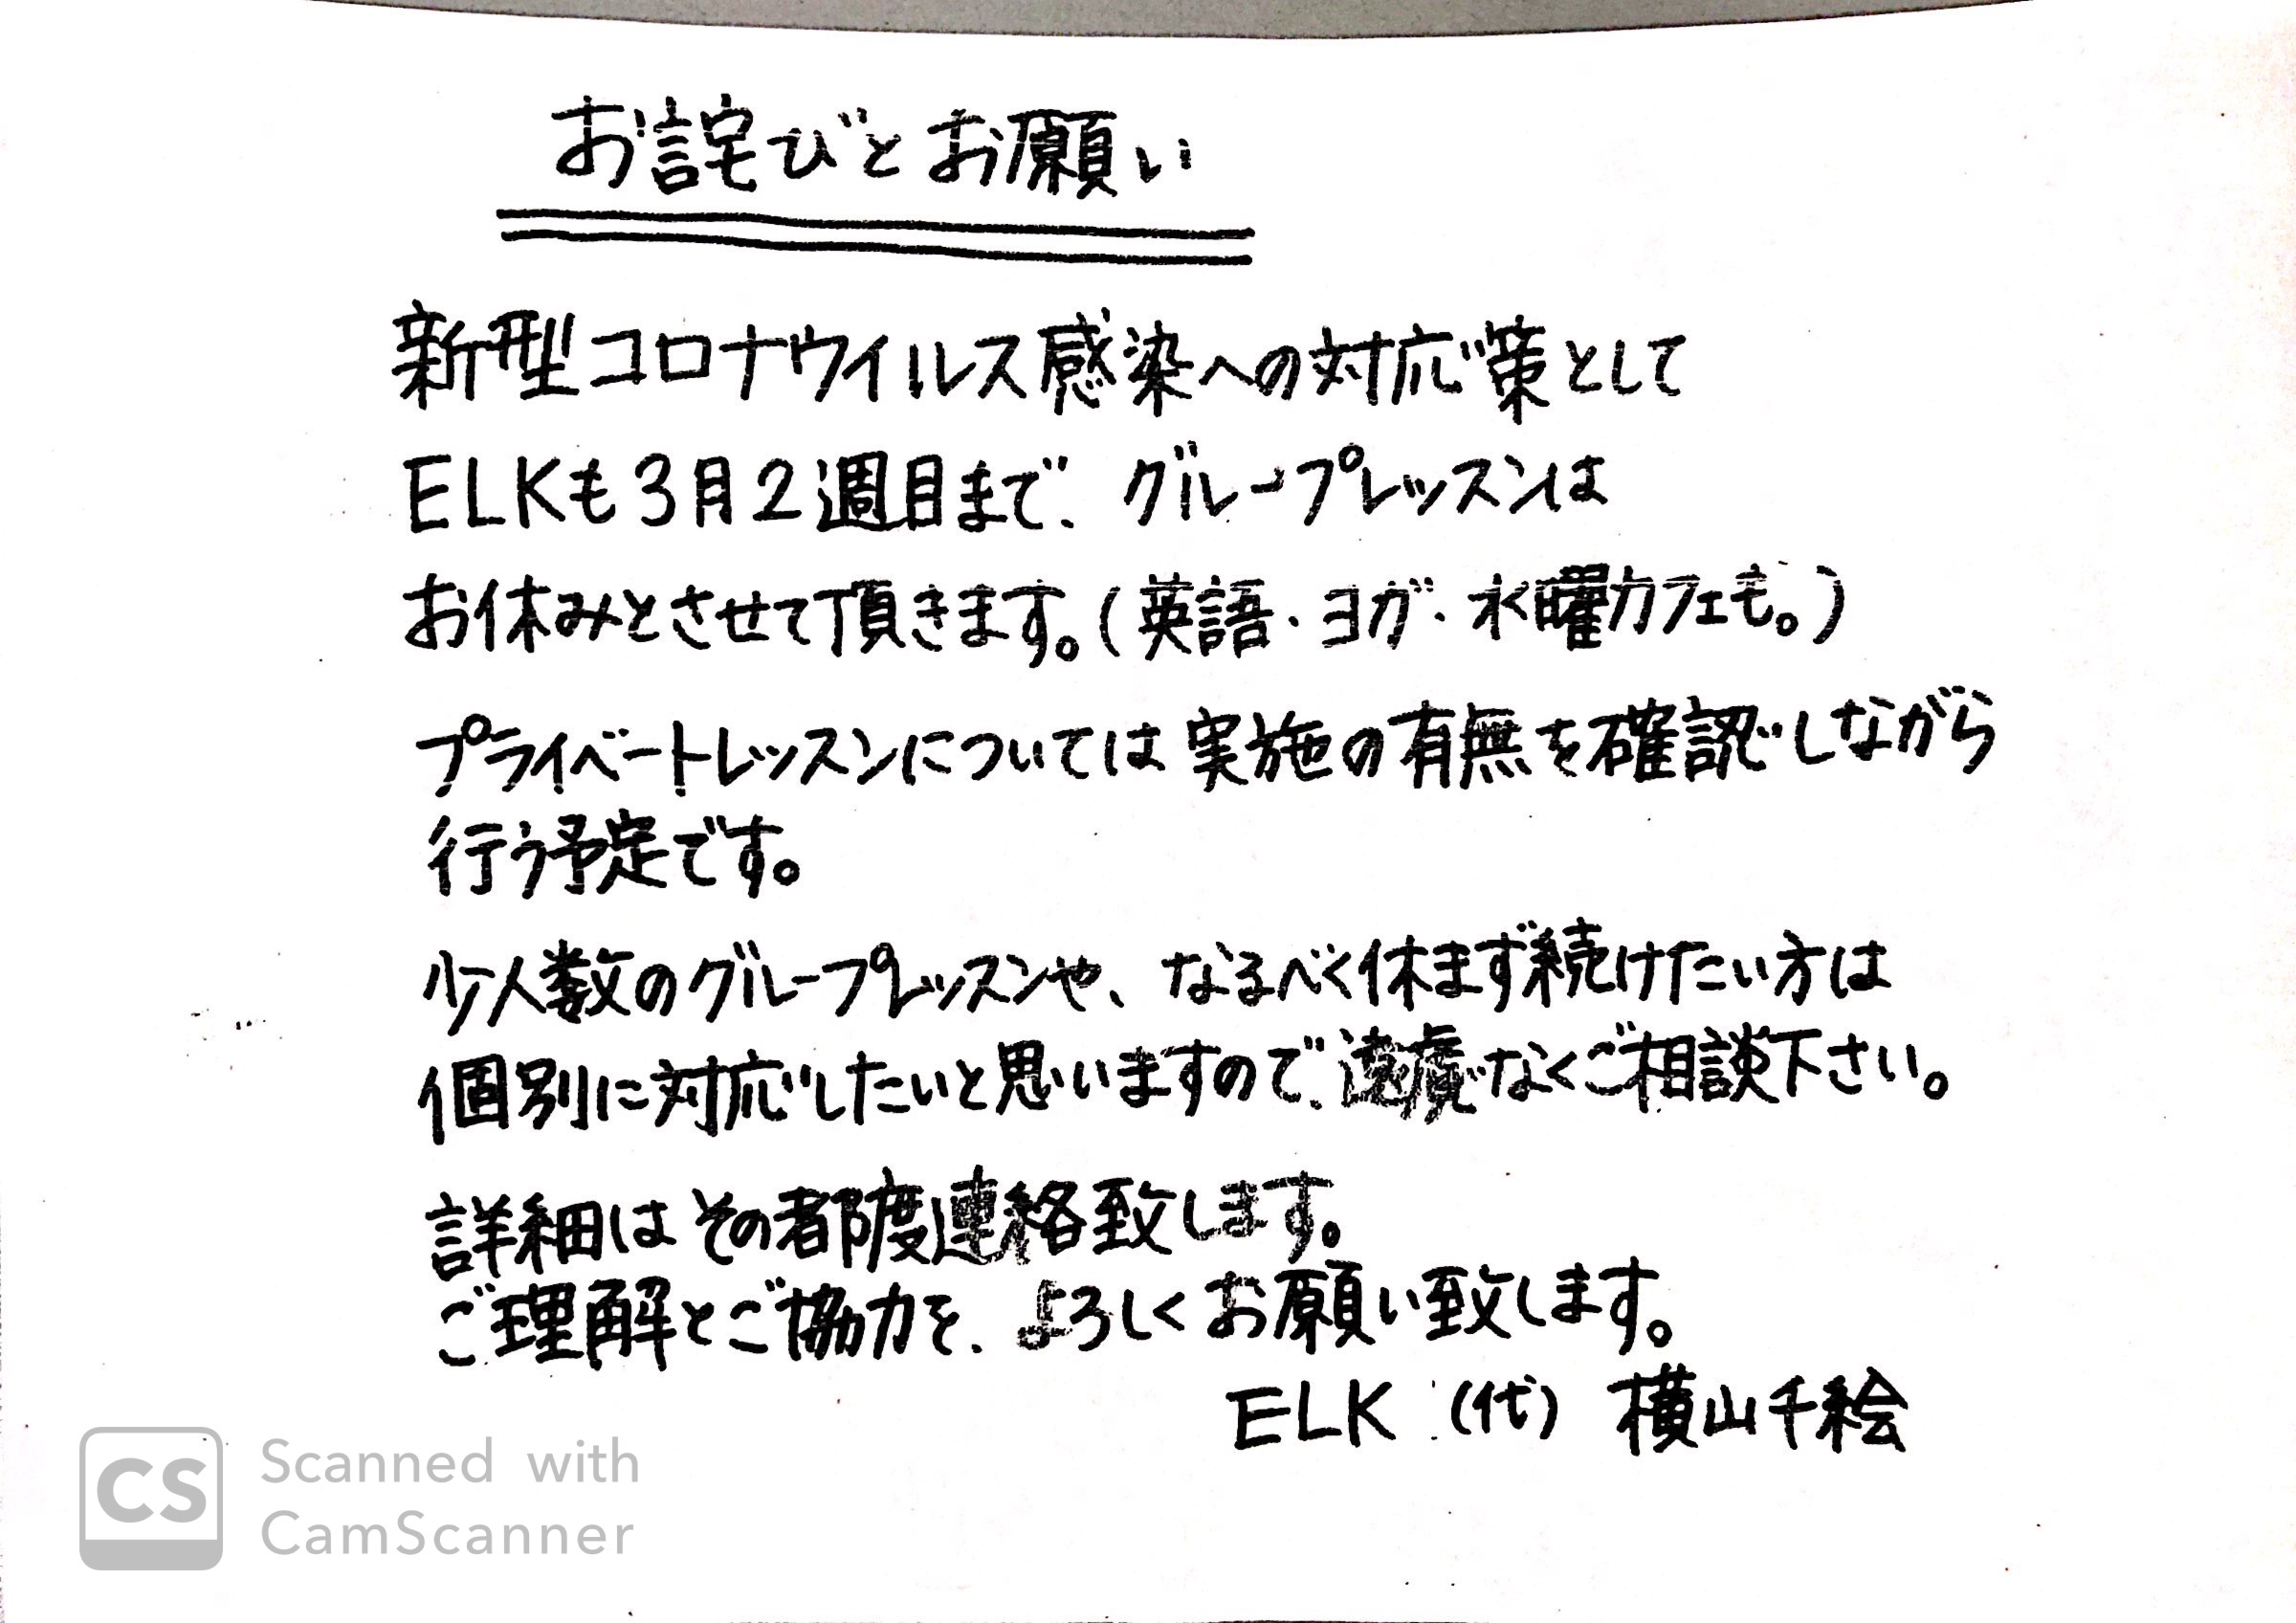 お詫びとお願い
新型コロナウイルス感染への対応策として
ELKも3月2週目まで、グループレッスンは
お休みとさせて頂きます。(英語・ヨガ・水曜カフェも。)
プライベートレッスンについては実施の有無を確認しながら
行う予定です。
少人数のグループレッスンや、なるべく休まず続けたい方は
個別に対応したいと思いますので、遠慮なくご相談下さい。
詳細はその都度連絡致します。
ご理解とご協力を、よろしくお願い致します。
ELK (代) 横山千絵
CS
Scanned with
CamScanner